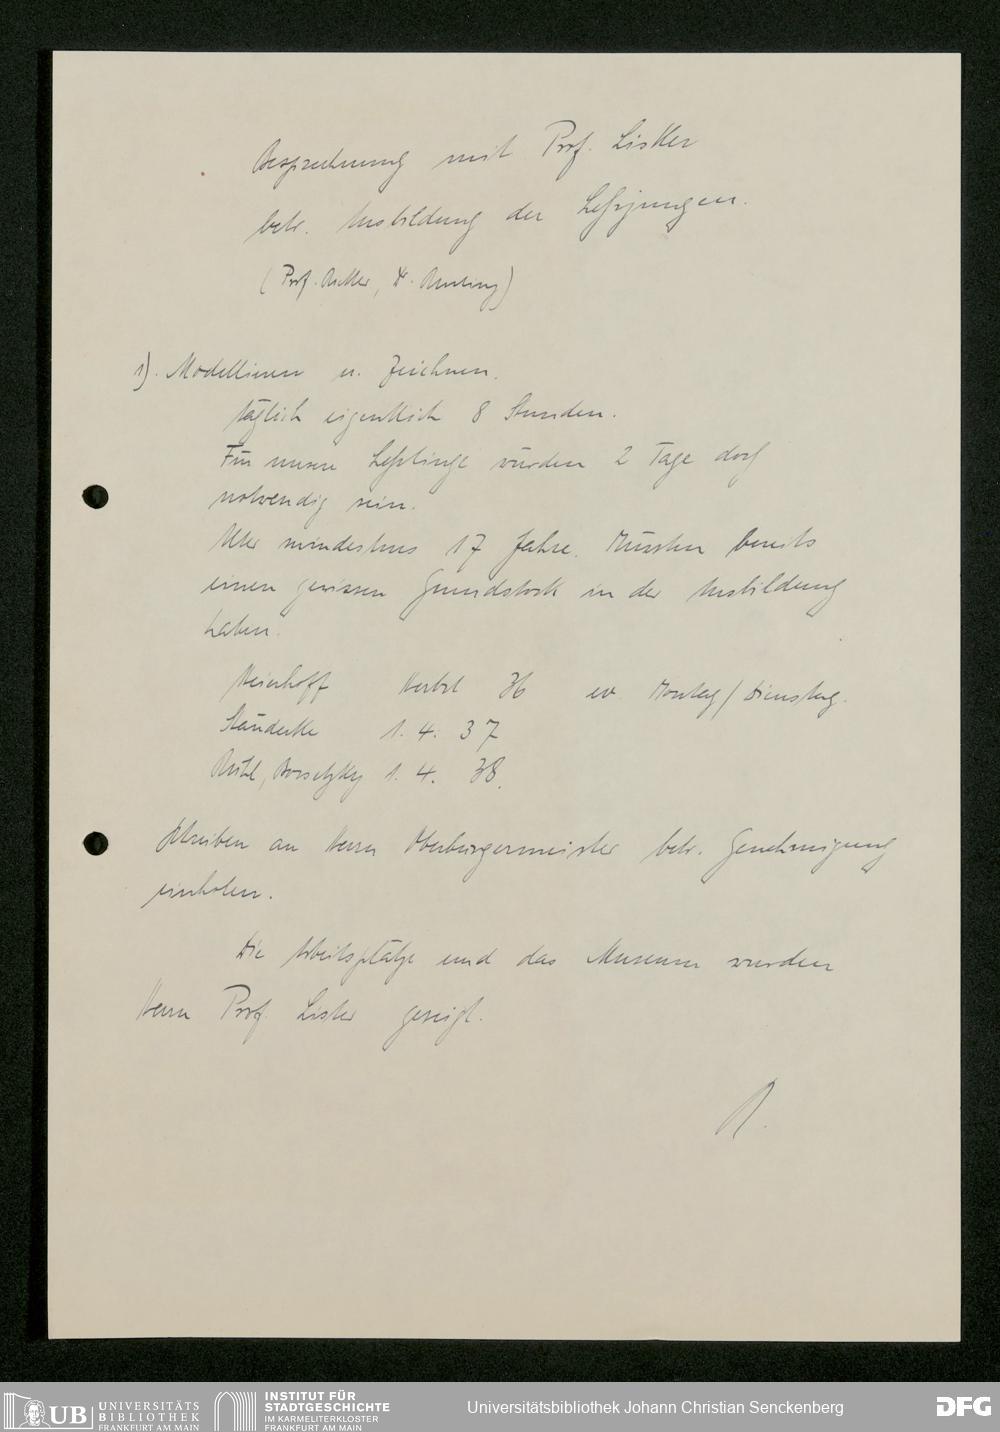 Besprechnung mit Prof. Lisker
betr. Ausbildung der Lehrjungen.
(Prof. Richter, Dr.
1). Modellieren u. Zeichnen.
täglich eigentlich 8 Stunden.
Für unsere Lehrlinge würden 2 Tage doch
notwendig sein.
Alter mindestens 17 Jahre. Müssten bereits
einen gewissen Grundstock in der Ausbildung
haben.
Meierhoff Herbst 36 ev. Montag/Dienstag.
Staudecke 1. 4. 37
Rühl, 1. 4. 38.
Schreiben an Herrn Oberbürgermeister betr. Genehmigung
einholen.
Die Arbeitsplätze und das Museum wurden
Herrn Prof. Lisker gezeigt.
R.
UB UNIVERSITÄTS
BIBLIOTHEK
FRANKFURT AM MAIN
INSTITUT FÜR
STADTGESCHICHTE
IM KARMELITERKLOSTER
FRANKFURT AM MAIN
Universitätsbibliothek Johann Christian Senckenberg
DFG